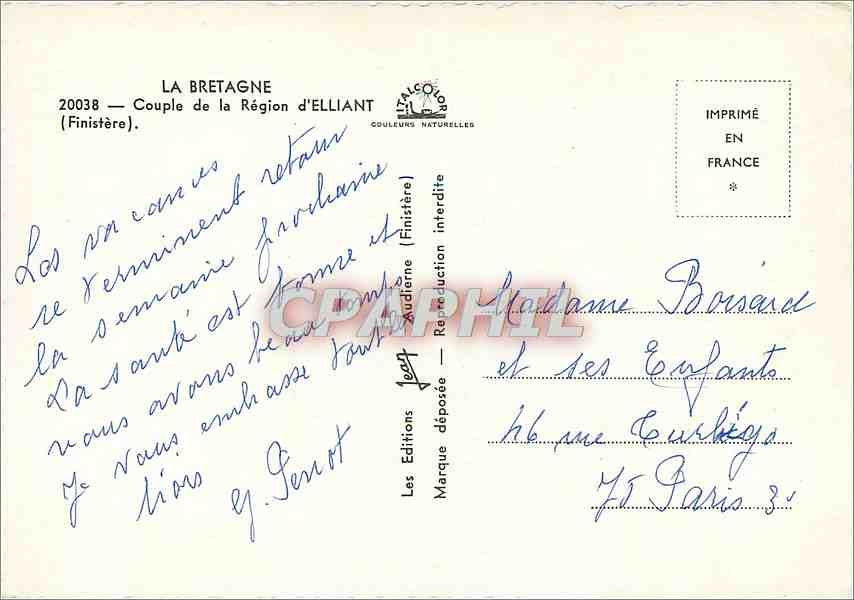 LA BRETAGNE
20038 — Couple de la Région d'ELLIANT
(Finistère).
ITALCOLOR
COULEURS NATURELLES
IMPRIMÉ
EN
FRANCE
*
Les vacances
se terminent retour
la semaine prochaine
La santé est bonne et
nous avons beau temps
Je vous embrasse tout les
G. Perrot
Les Editions Jean Audierne (Finistère)
Marque déposée — Reproduction interdite
Madame Boisard
et ses Enfants
46 rue Turbigo
75 Paris 3
CPAPHIL